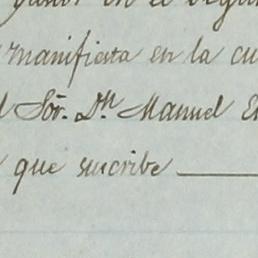 en el
manifiesta en la cu
Sõr. Dⁿ Manuel
que suscribe